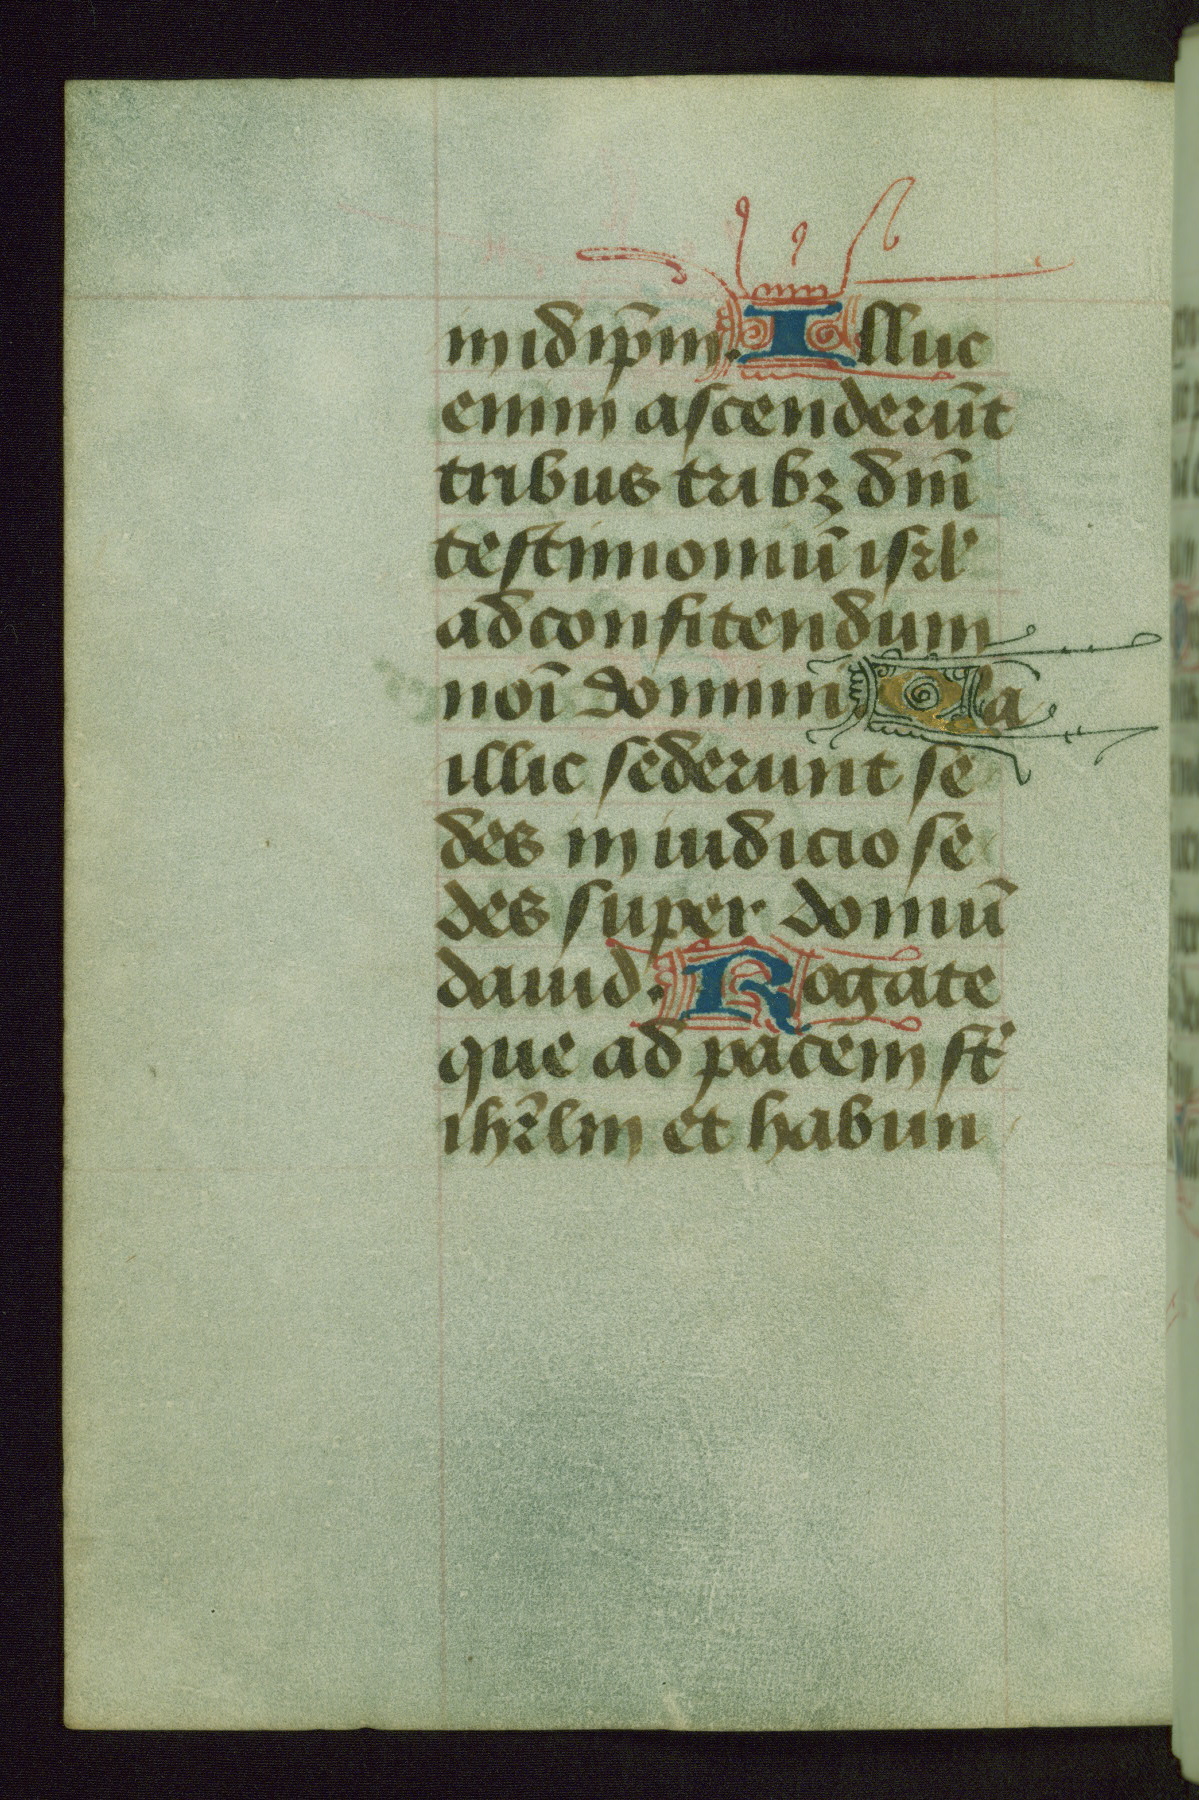 in idip̄m. Illuc
enim ascenderūt
tribus tribꝫ dn̄i
testimoniū isrl̄
ad confitendum
noī domini Q̇a
illic sederunt se
des in iudicio se
des super domū
dauid. Rogate
que ad pacem st̄
ihr̄lm et habun